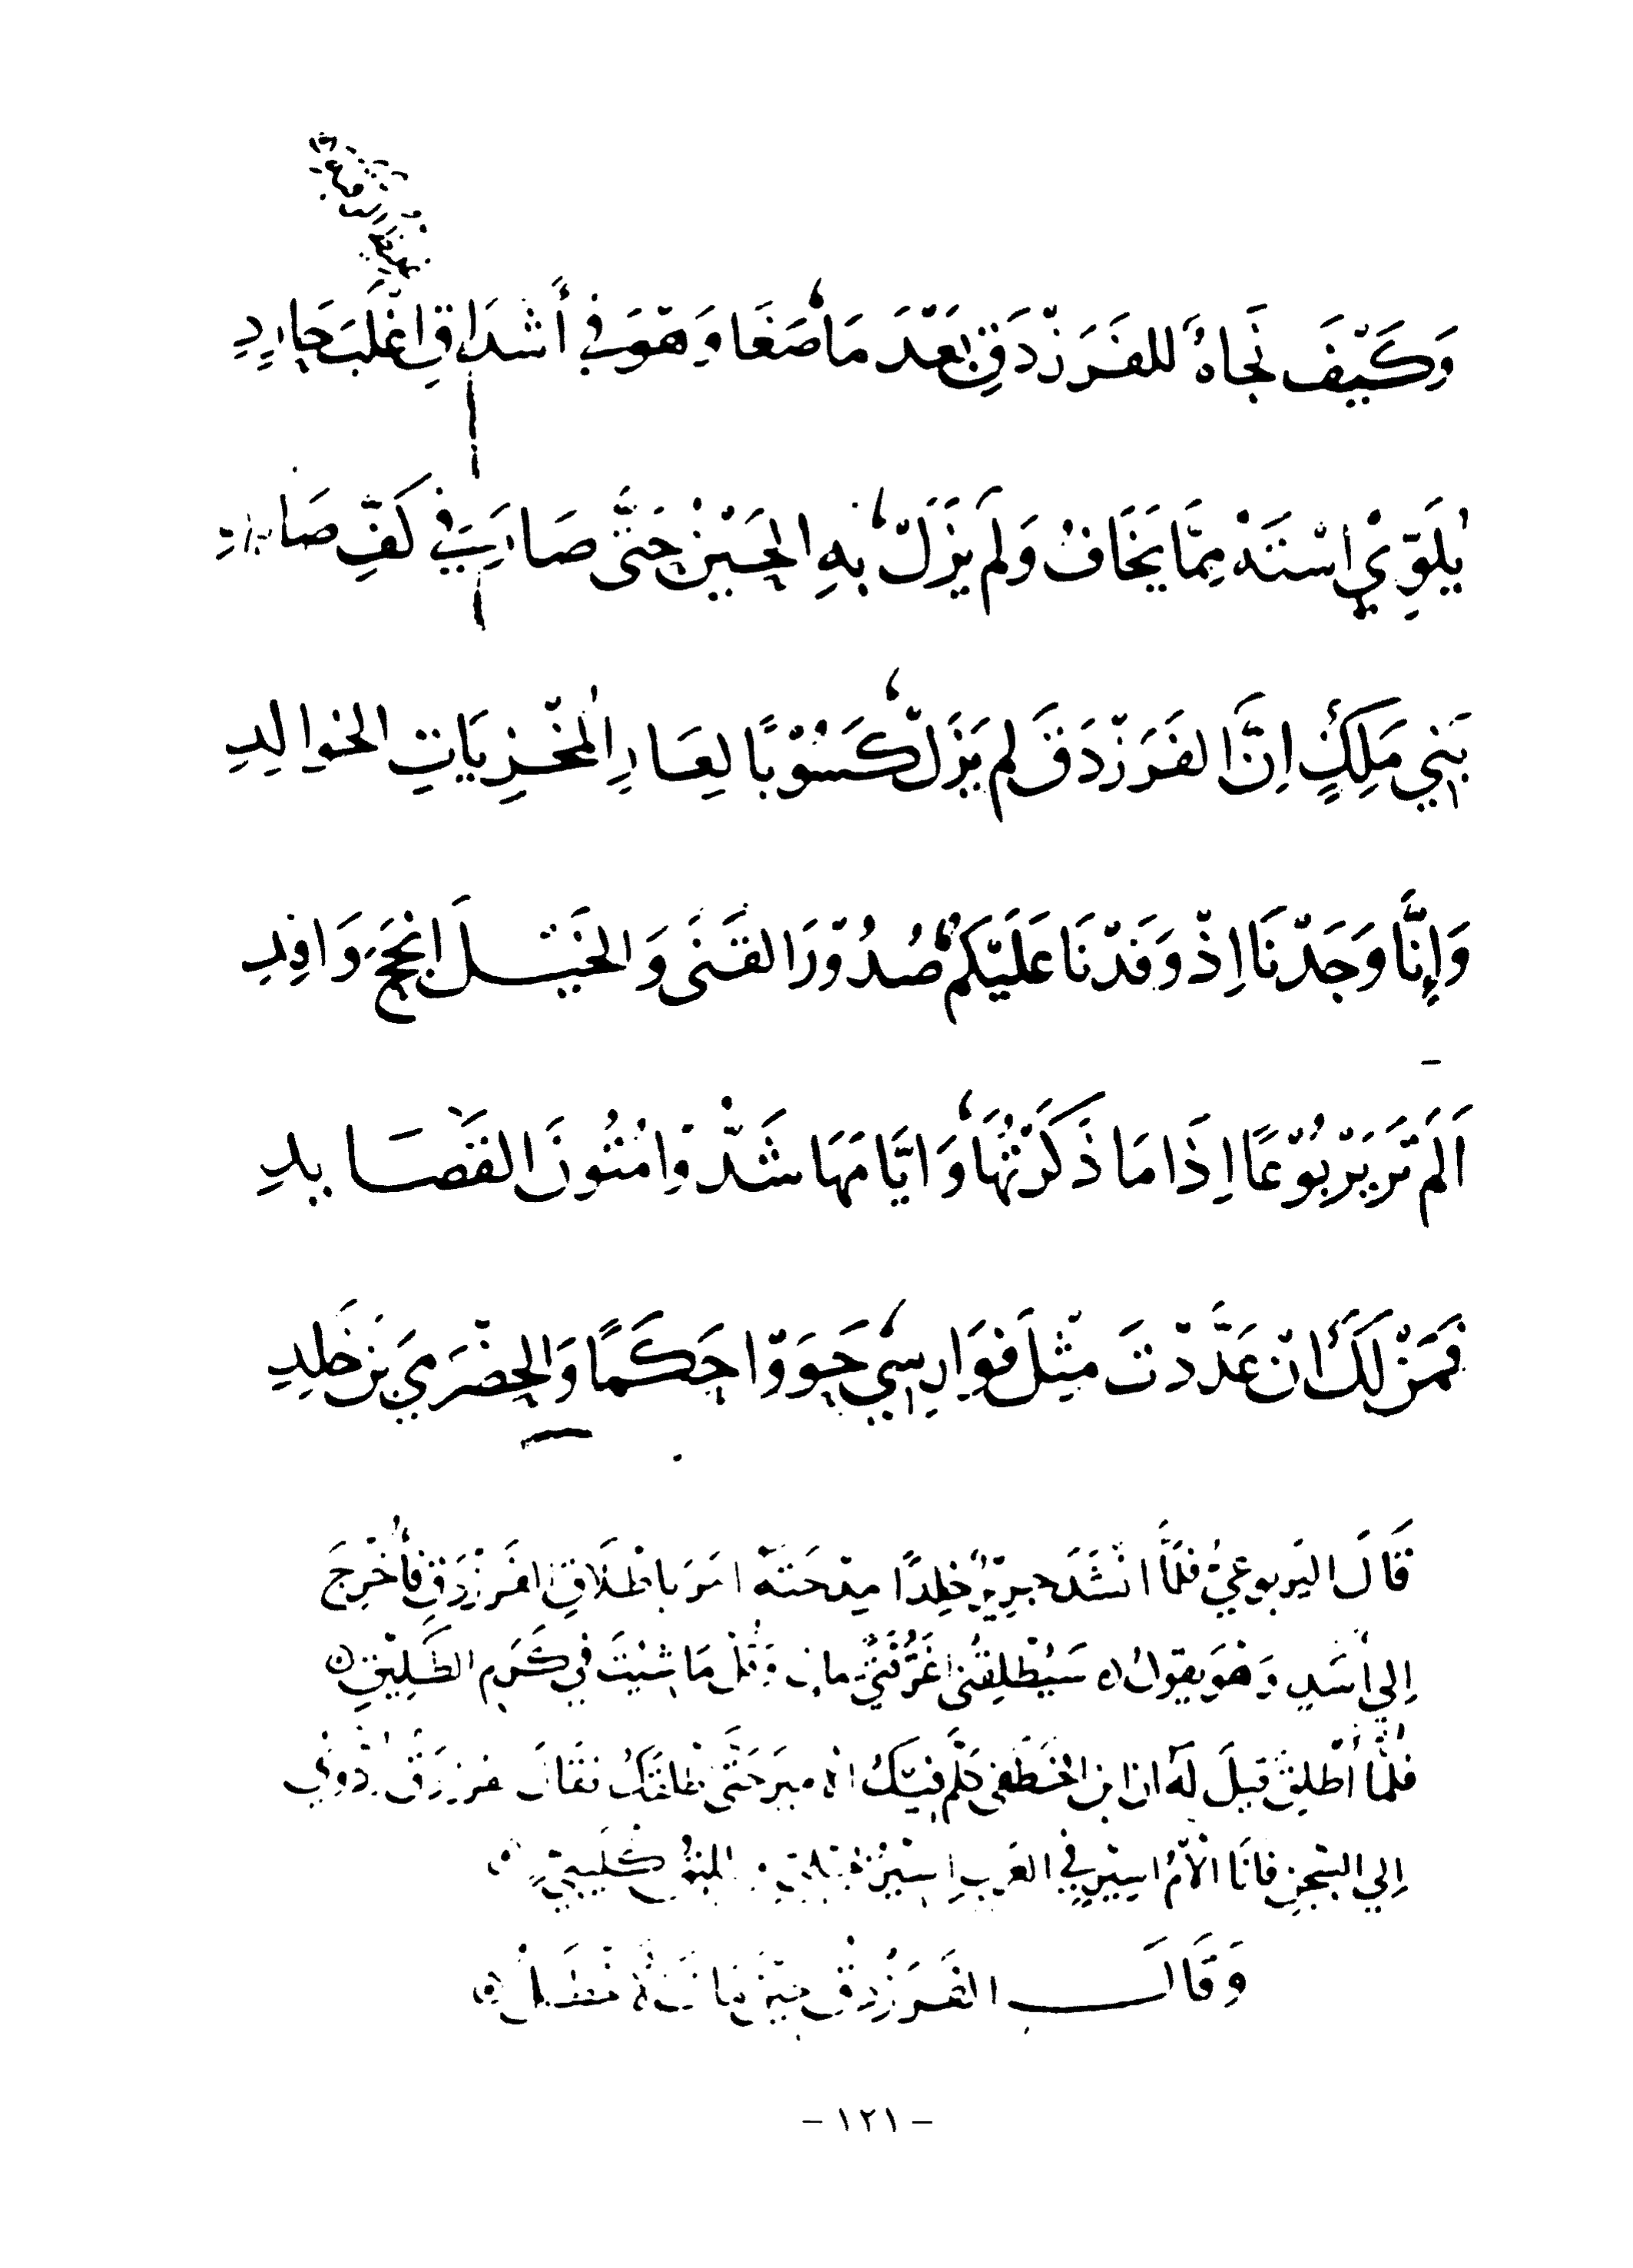 وَكَيْفَ نَجَاةٌ للفَرَزْدَقِ بَعْدَ مَا ضَغَا وَهْوَ فِي أَشْدَاقِ اغْلَبَ حَارِدِ
يُلَوِّي اسْتَهُ مِمَّا يَخَافُ وَلَم يَزَلْ بهِ الحَيْنُ حَتَّى صَارَ فِي كَفِّ صَا
بَنِي مَلِكٍ اِنَّ الفَرَزْدَقَ لم يَزَلْ كَسُوْبًا لِعَارِ المُخْزِيَاتِ الخوالِدِ
وَإِنَّا وَجَدْنَا اِذْ وَفَدْنَا عَلَيْكُمُ صُدُوْرَ القَنَى وَالخَيْلَ انْجَحَ وَافِدِ
اَلَم تَرَ يَرْبُوْعًا اِذَا مَا ذَكَرْتُهَا وَايَّامَهَا شَدُّوْا مُتُونَ القَصَايدِ
فَمَنْ لَكَ انْ عَدَّدْتَ مِثْلَ فَوَارِسِي حَوَوْا حَكَمًا وَالحَضْرَمِيَ بنَ خَلِدِ
قَالَ اليَربوعيُّ فلَمَّا انْشَدَ جريْرٌ خلِدًا مِدْحَتَهُ امَرَ باطْلَاقِ الفَرَزدَقِ فأُخْرِجَ
اِلي أسَدٍ وَهْوَ يقولُ سَيُطْلِقُنِي مَا شيْتَ فِي كَرَمِ الطَّلِيْقِ
فلَمَّا أُطْلِقَ قيلَ لَهُ ان ابن الخَطَفَى كَلَّم فيْكَ الامير حَتَّى اطلقَكَ فقَالَ رُدُّونِي
اِلي السِّجنِ فانَا الأَمُ اسِيْرٍ فِي العَرَبِ اسيْرُ كُلَيبِيٍّ
وَقَالَ الفَرَزْدَقُ
- ١٢١ -